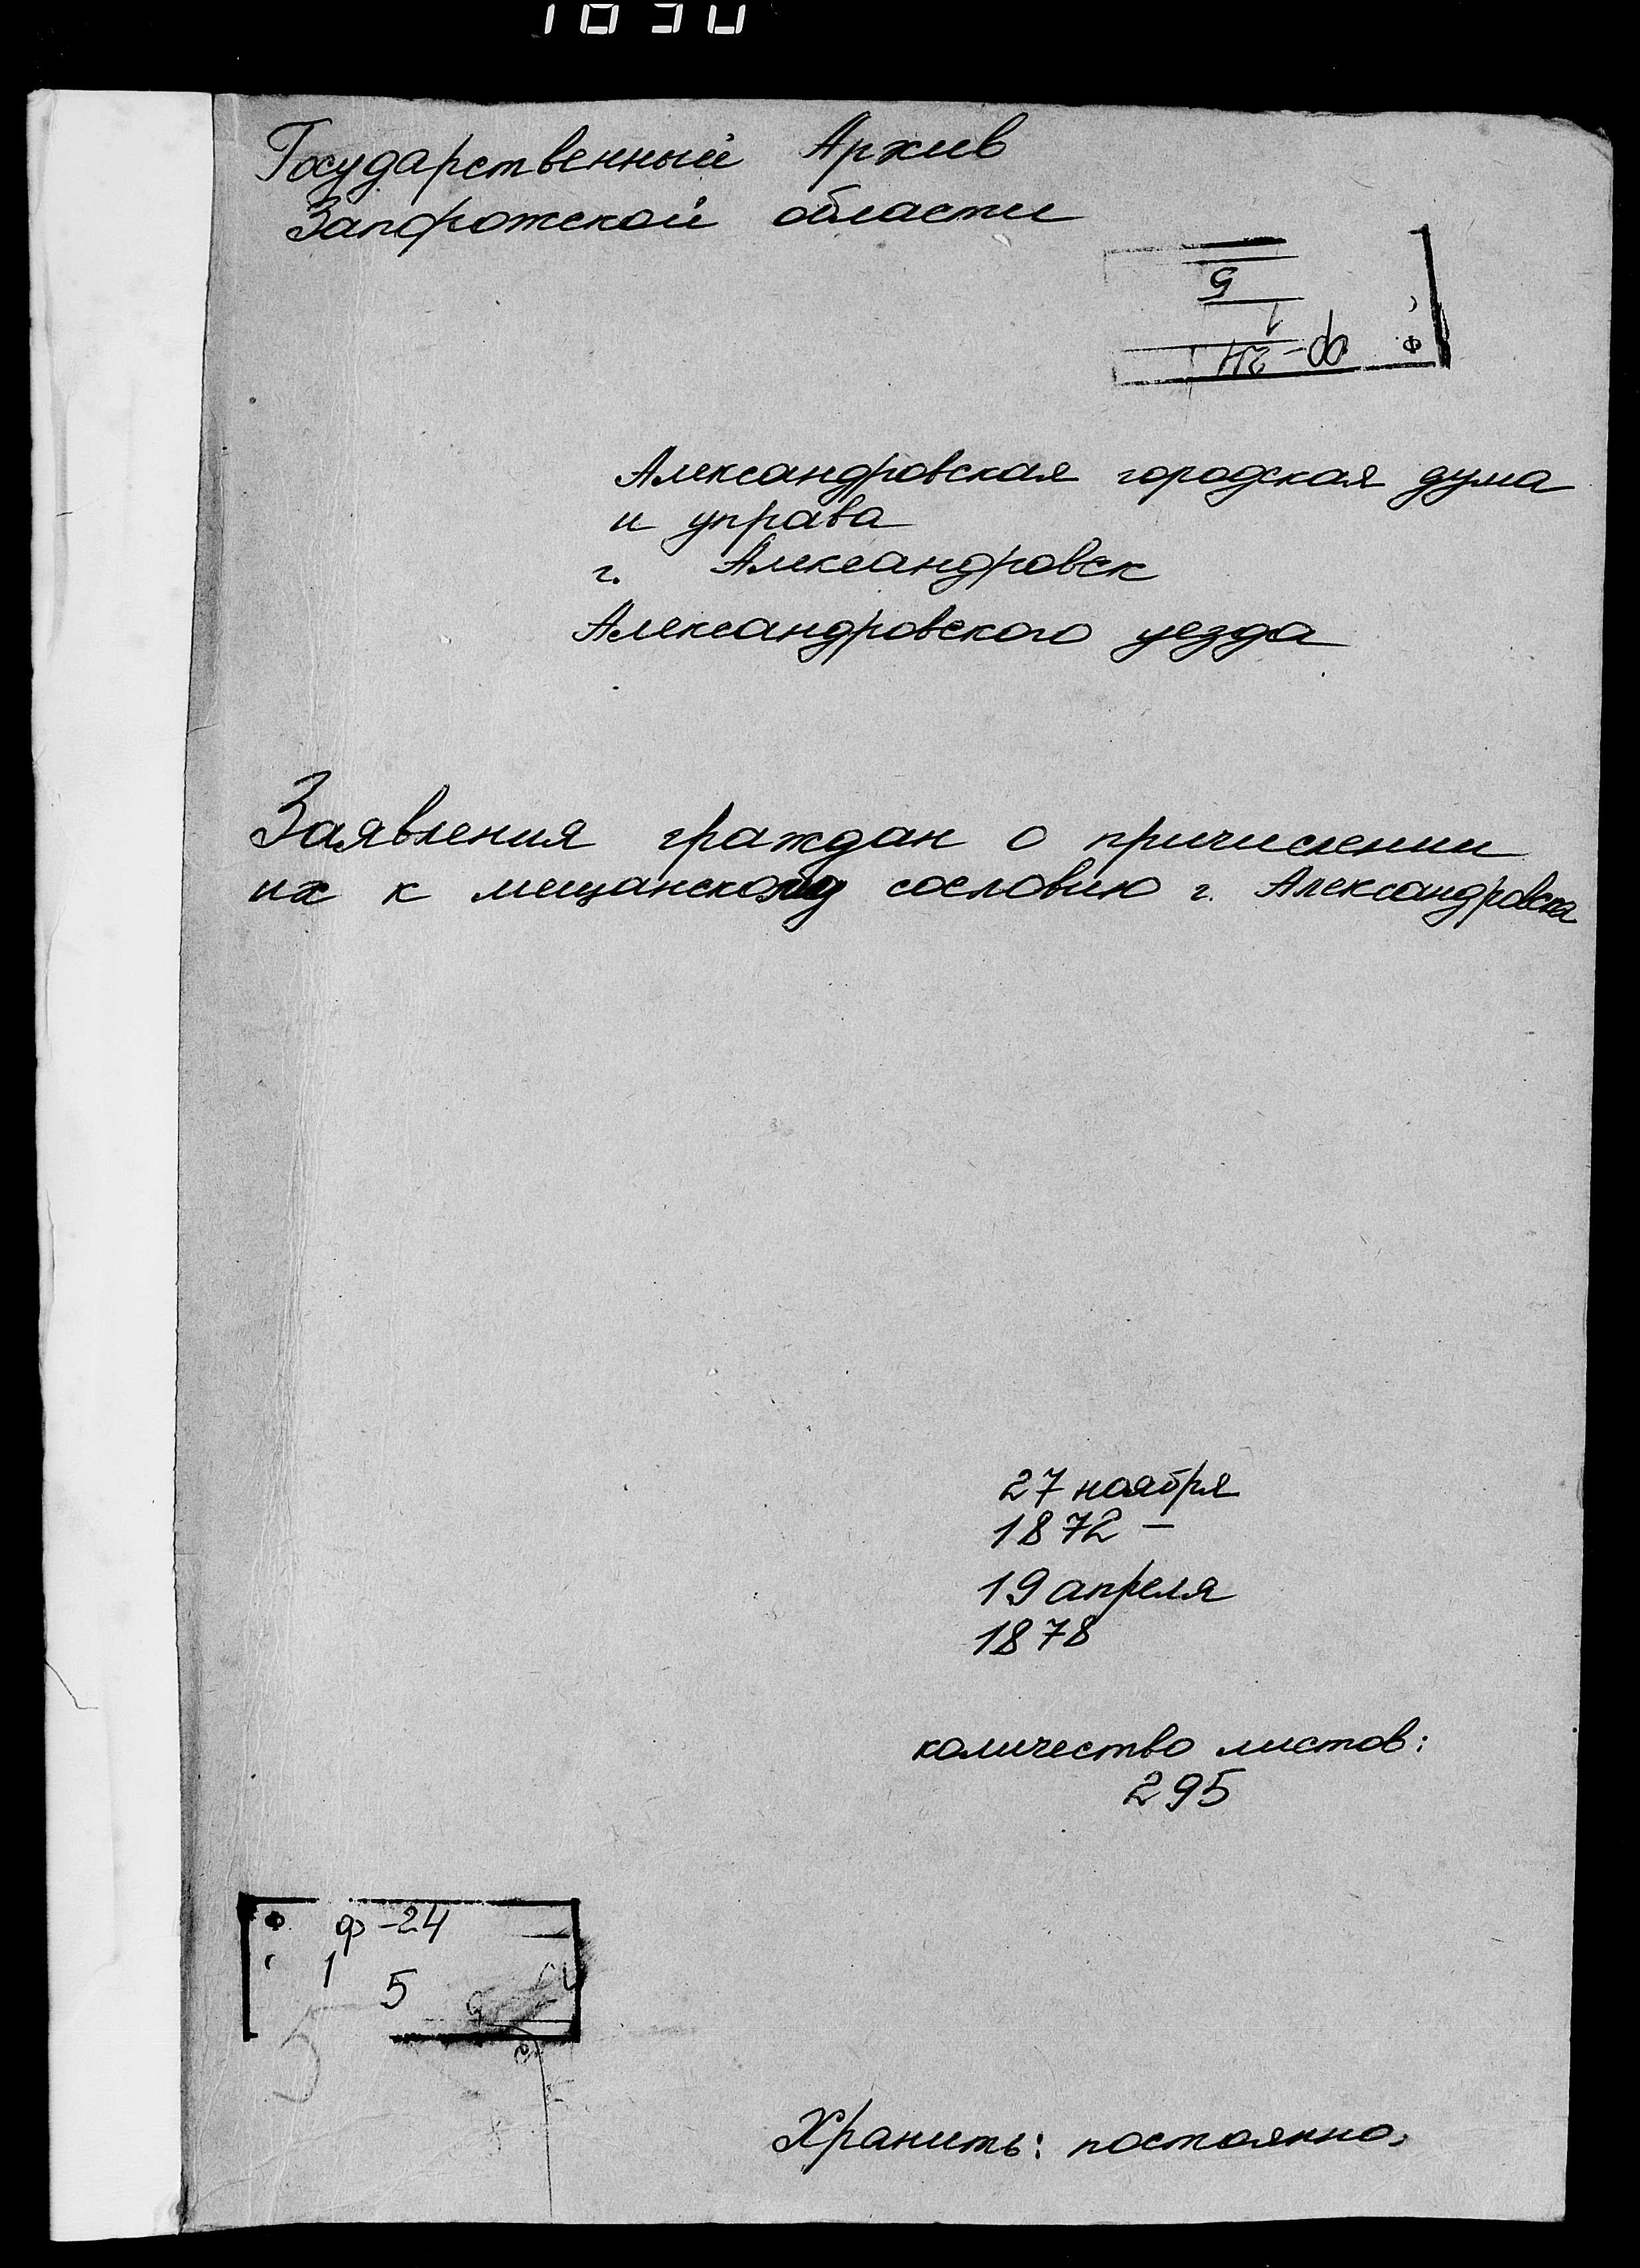 Государственный Архив
Запорожской области
5
1
ф-24
Ф
Александровская городская дума
и управа
г. Александровск
Александровского уезда
Заявления граждан о причислении
их к мещанскому сословию г. Александровска
27 ноября
1872 –
19 апреля
1878
количество листов:
295
Ф. ф-24
1
5
5
Хранить: постоянно.